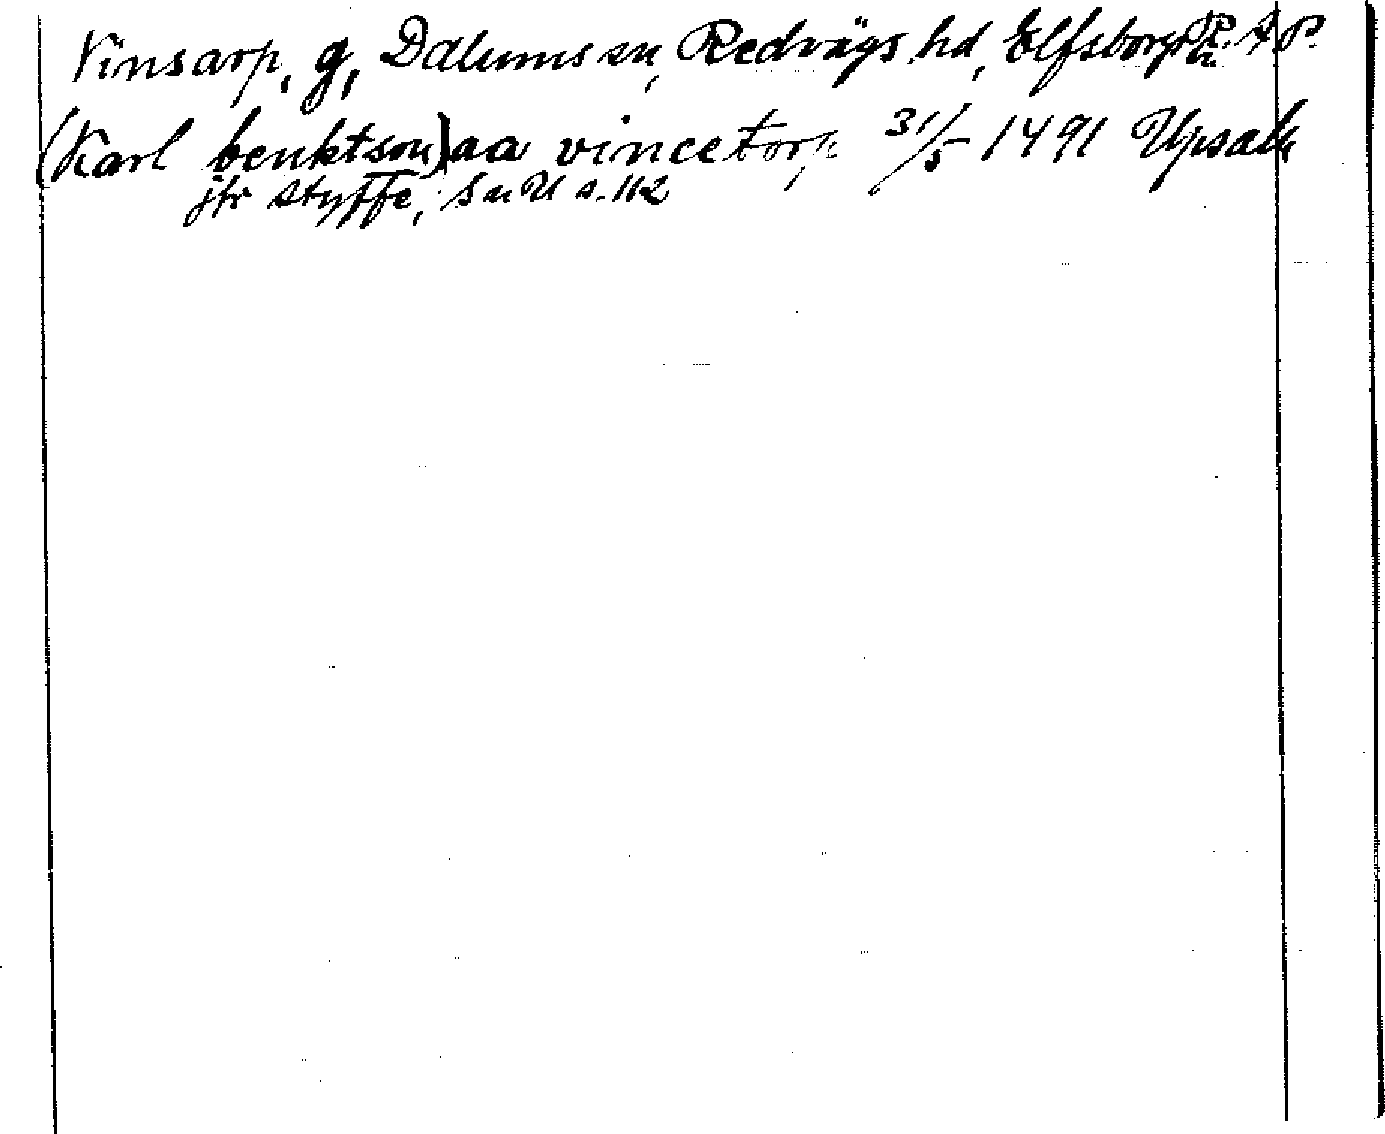 Vinsarp, g, Dalums sn, Redvägs hd, Elfsborgs R.A.P.
(Karl benktson) aa vincetorp 31/5 1491 Upsala
jfr Styffe, SuU s. 112